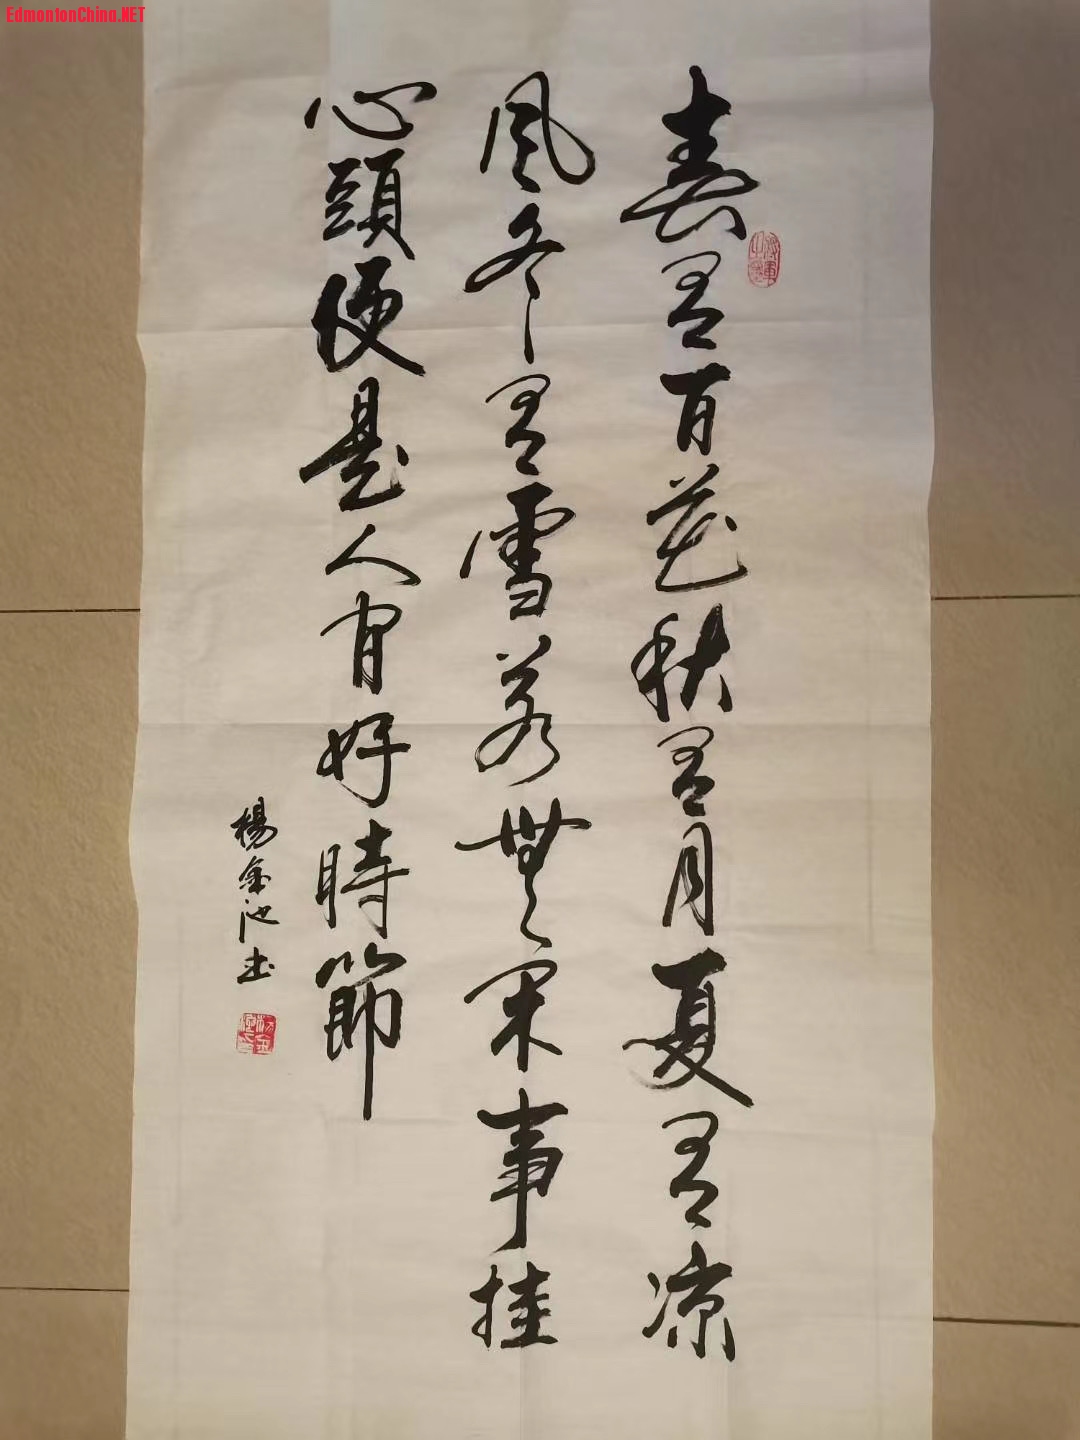 EdmontonChina.NET
春有百花秋有月夏有凉
風冬有雪若無閑事挂
心頭便是人間好時節
楊金池书